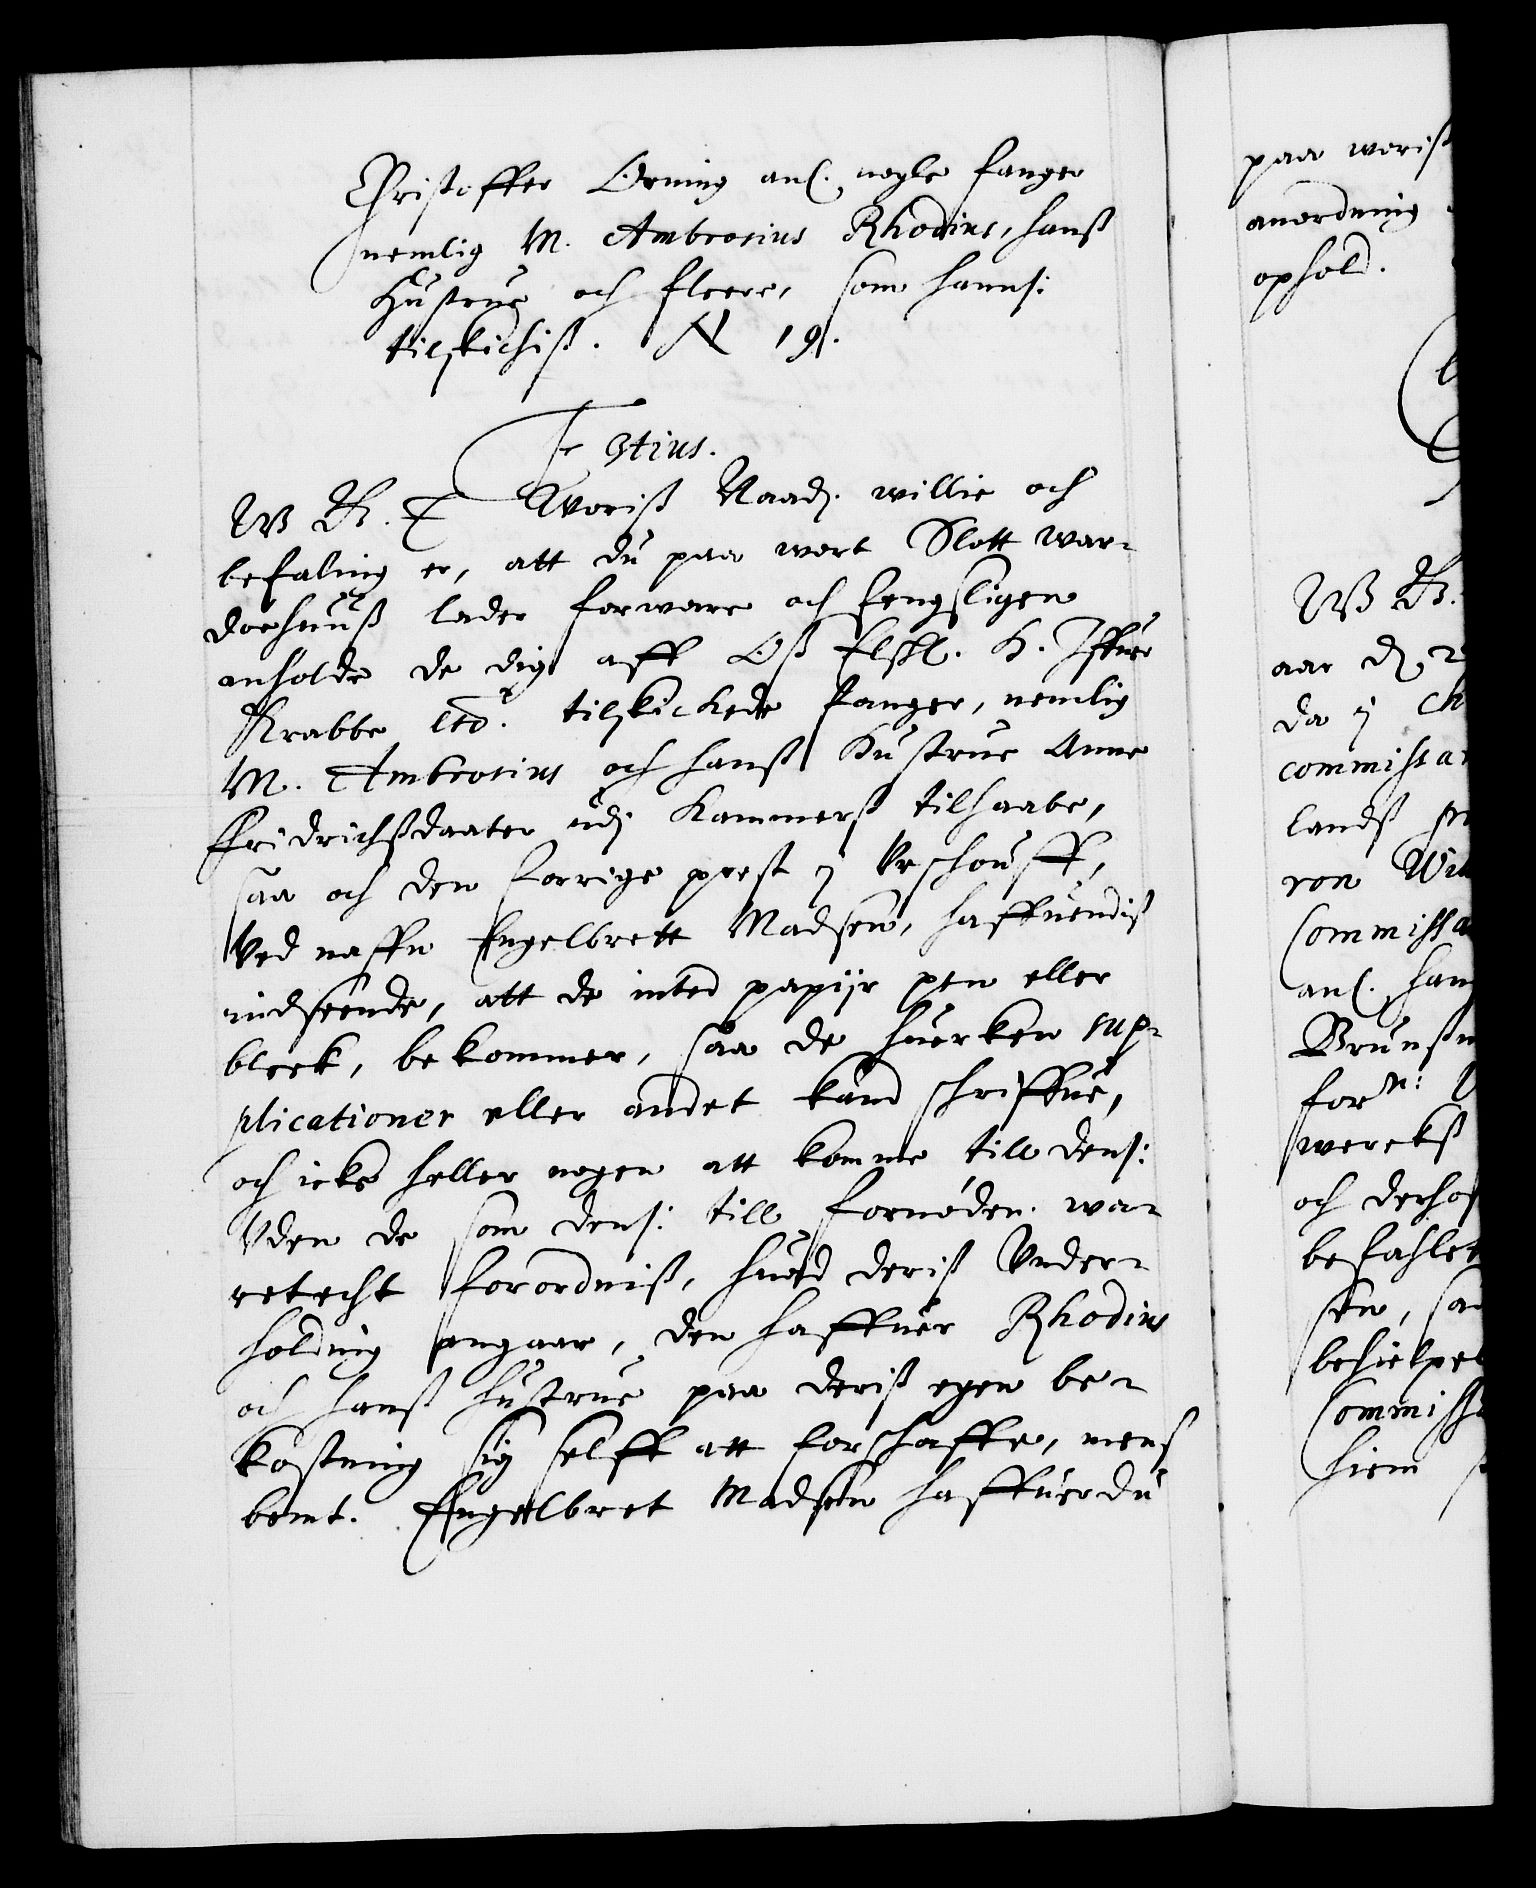 Christoffer Orning anl. nogle fanger
nemlig M. Ambrosius Rhodius, hanß
Hustrue och fleere, som hannſ:
tilskichiß. N 19.
F 3tius.
W G. T Woriß Naad. willie och
befaling er, att du paa wort Slott War-
doehuuß lader forware och fengsligen
anholde de dig aff Oß Elskl. H. Iffuer
Krabbe etc. tilskickede fanger, nemlig
M. Ambrosius och hanß Hustrue Anne
Fridrichßdaater udj Kammerß tilhaabe,
saa och den forrige prest j
Ved naffn Engelbrett Madsen, haffuendiß
indseende, att de inted papijr pen eller
bleek, bekommer, saa de huerken sup-
plicationer eller andet kand schriffue,
och icke heller nogen att komme till denſ:
Uden de som denſ: till fornøden wa-
retecht forordniß, huad deriß Under-
holding angaar, den haffuer Rhodius
och hanß hustrue paa deriß egen be-
kostning sig selff att forschaffe, menſ
bemt. Engelbret Madsen haffuer du
paa woriß
anordning
ophold.
W G.
aar d. 2
da j Ch
commissar
landß
von
Commissa
anl. han
forn:
werckß
och derhoß
befahlet
sen, saa
behielpel
Commissa
hiem